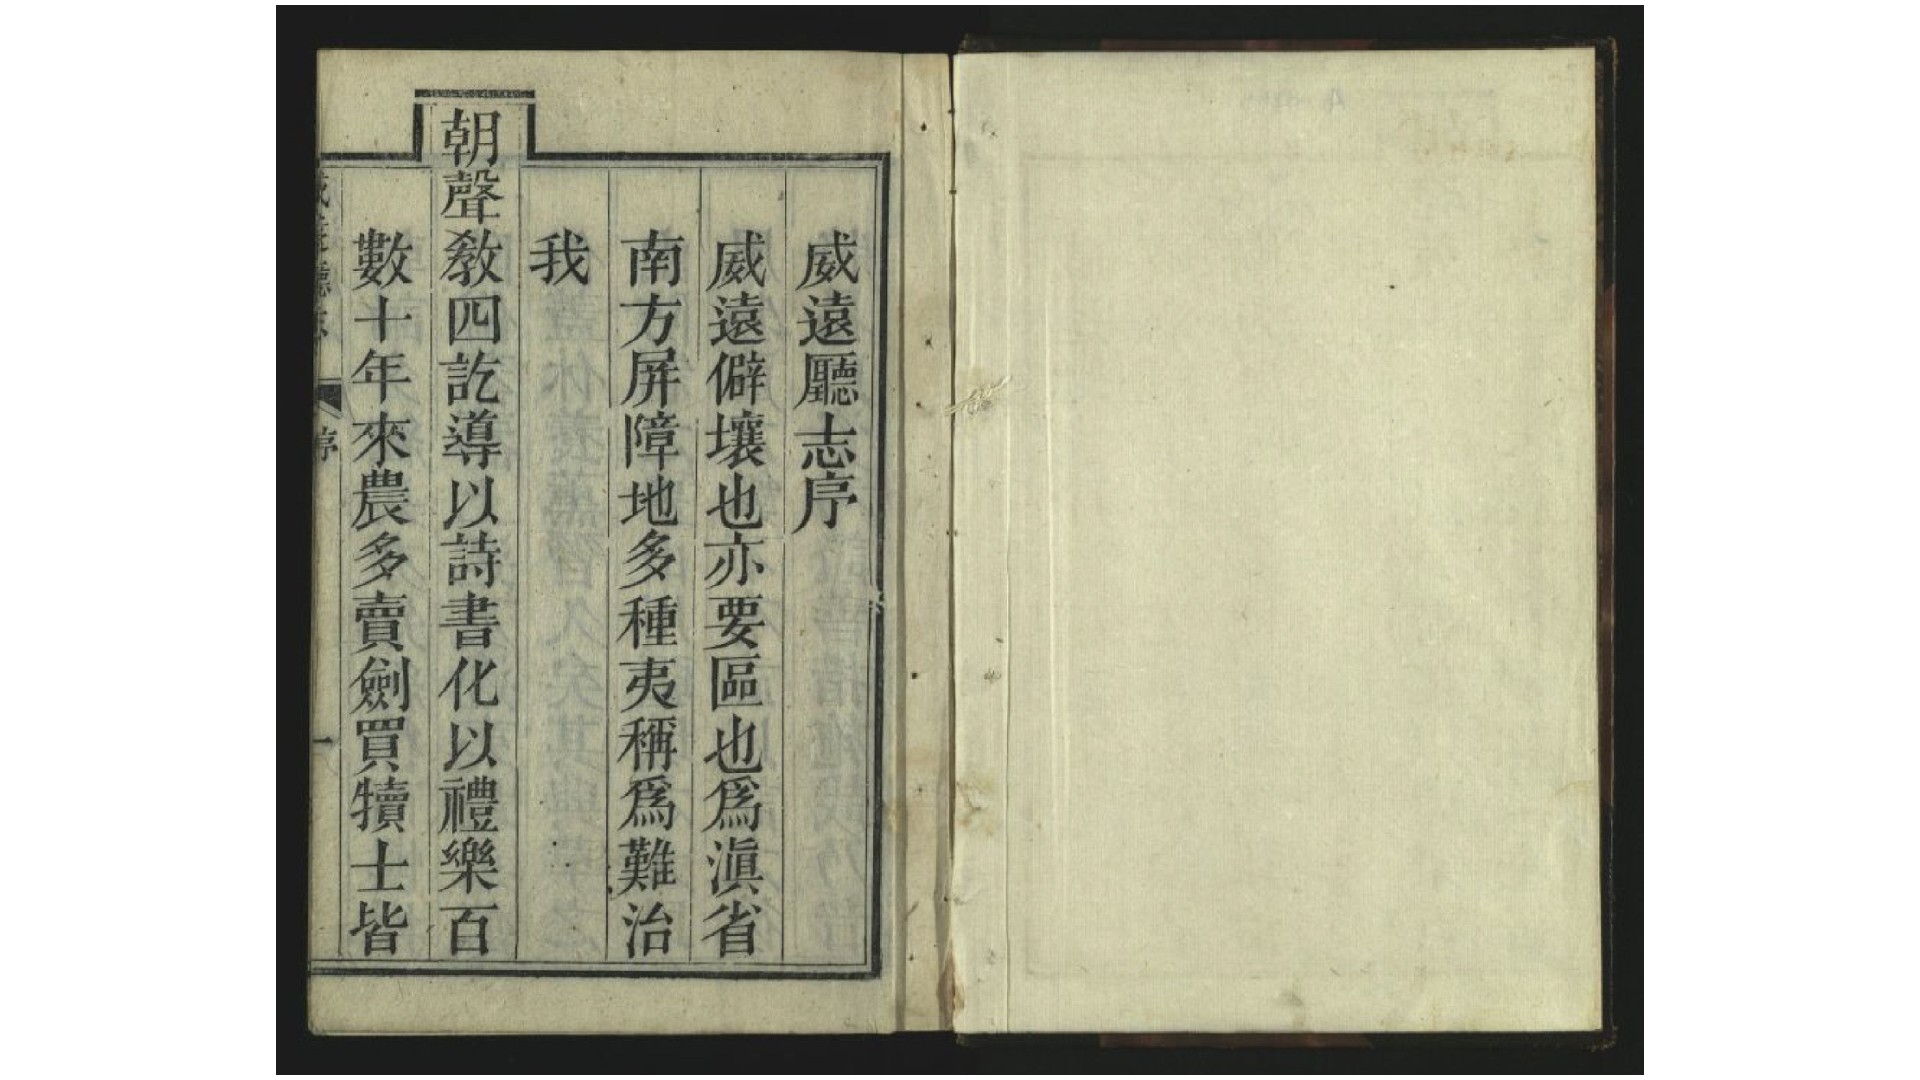 威遠廳志序
威遠僻壤也亦要區也爲滇省
南方屏障地多種夷稱爲難治
我
朝聲敎四訖導以詩書化以禮樂百
數十年來農多賣劍買犢士皆
威遠廳志 序 一